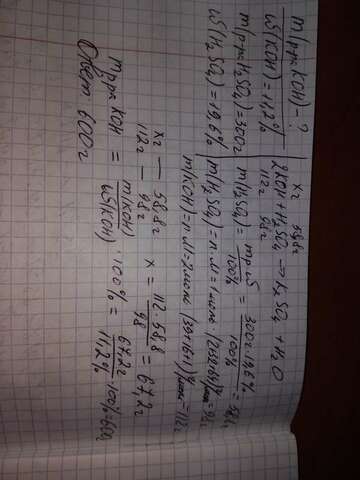 m(р-ра KOH) - ?
ω(KOH) = 11,2%
m(р-ра H₂SO₄) = 300г
ω(H₂SO₄) = 19,6%
xг 58,8г
2KOH + H₂SO₄ → K₂SO₄ + H₂O
112г 98г
m(H₂SO₄) = mр-ра·ω / 100% = 300г·19,6% / 100% = 58,8г
m(H₂SO₄) = n·M = 1моль
m(KOH) = n·M = 2моль · (39+16+1) г/моль = 112г
xг — 58,8г
112г — 98г
x = 112·58,8 / 98 = 67,2г
mр-ра KOH = m(KOH) / ω(KOH) · 100% = 67,2г / 11,2% · 100% = 600г
Ответ: 600г